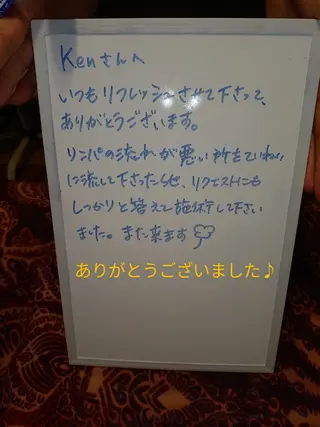 Kenさんへ
いつもリフレッシュさせて下さって、
ありがとうございます。
リンパの流れが悪い所をていねい
に流して下さったり、リクエストにも
しっかりと答えて施術して下さい
ました。また来ます
ありがとうございました♪